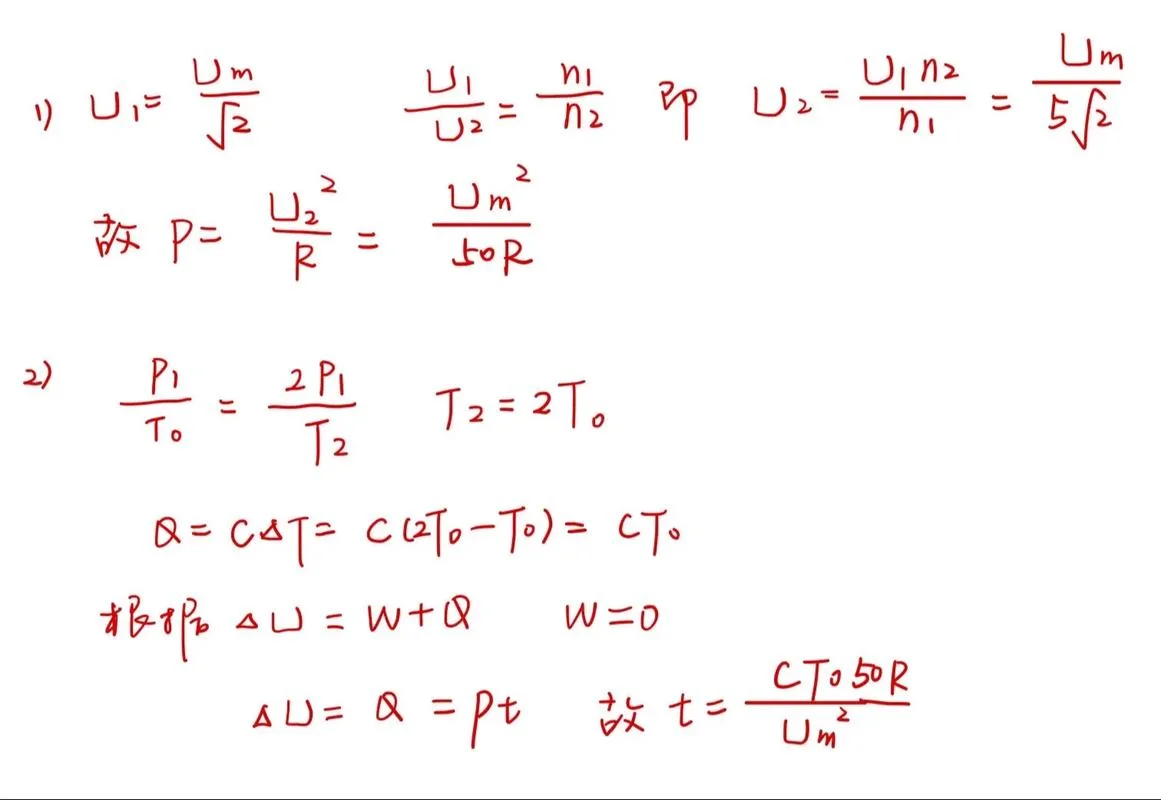 1) U₁=Um/√2 U₁/U₂=n₁/n₂ 即 U₂=U₁n₂/n₁=Um/5√2
故 P=U₂²/R=Um²/50R
2) P₁/T₀=2P₁/T₂ T₂=2T₀
Q=CΔT=C(2T₀-T₀)=CT₀
根据 ΔU=W+Q W=0
ΔU=Q=Pt 故 t=CT₀50R/Um²